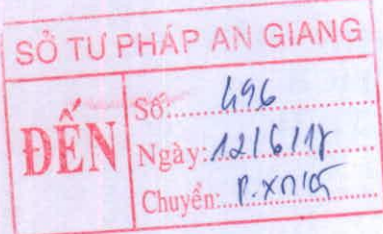 SỞ TƯ PHÁP AN GIANG
ĐẾN
Số: 496
Ngày: 12/6/18
Chuyển: P.